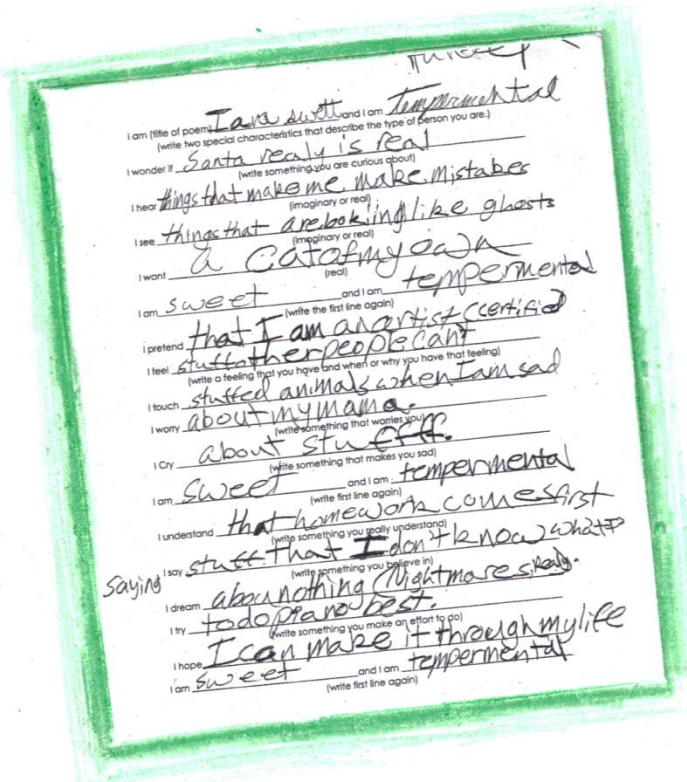 I am (title of poem) I am swett and I am Tempermental
(write two special characteristics that describe the type of person you are.)
I wonder if Santa realy is real
(write something you are curious about)
I hear things that make me make mistakes
(imaginary or real)
I see things that are looking like ghosts
(imaginary or real)
I want a cat of my own
(real)
I am sweet and I am tempermental
(write the first line again)
I pretend that I am an artist (certified)
I feel stuff other people cant
(write a feeling that you have and when or why you have that feeling)
I touch stuffed animals when I am sad
I worry about my mama.
(write something that worries you)
I Cry about stuffff.
(write something that makes you sad)
I am sweet and I am tempermental
(write first line again)
I understand that homework comes first
(write something you really understand)
I say stuff that I don't know what
saying
(write something you believe in)
I dream about nothing (Nightmares
I try to do piano best.
(write something you make an effort to do)
I hope I can make it through my life
I am sweet and I am tempermental
(write first line again)